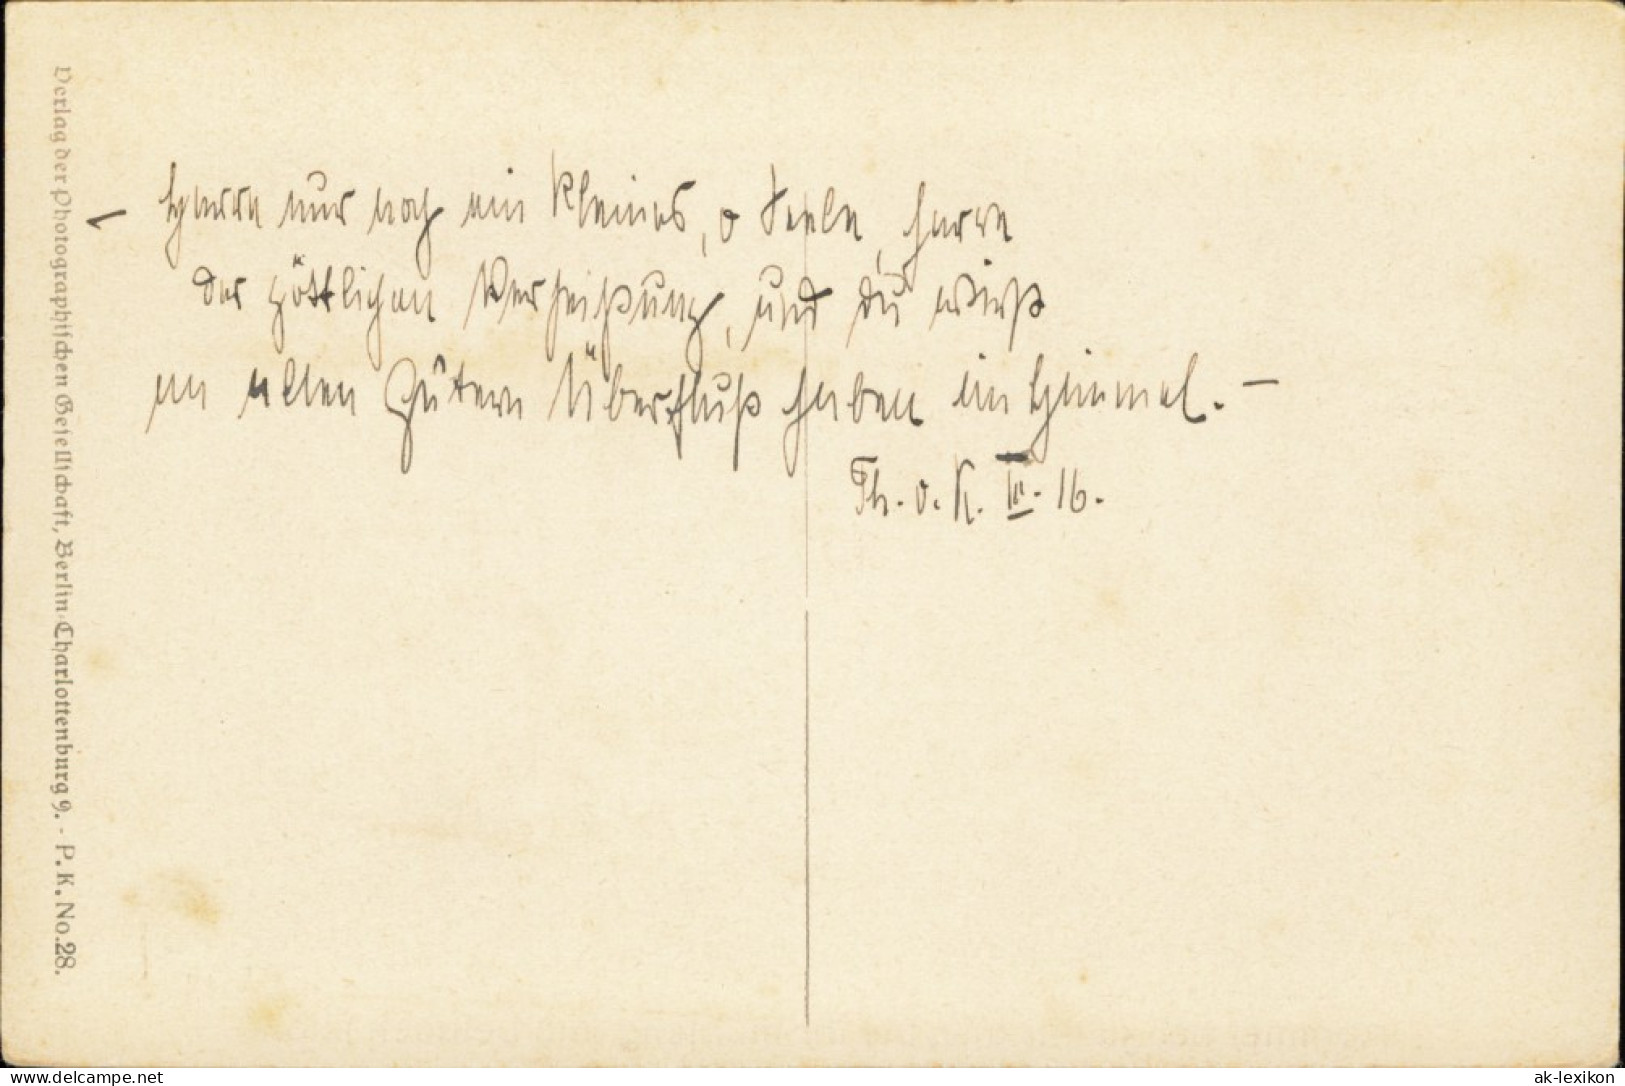 Verlag der Photographischen Gesellschaft, Berlin-Charlottenburg 9. - P. K. No. 28.
– Harre nur noch ein Kleines, o Seele, harre
der göttlichen Verheißung, und du wirst
an allen Gütern Überfluß haben im Himmel. –
Th. v. K. III. 16.
www.delcampe.net
ak-lexikon